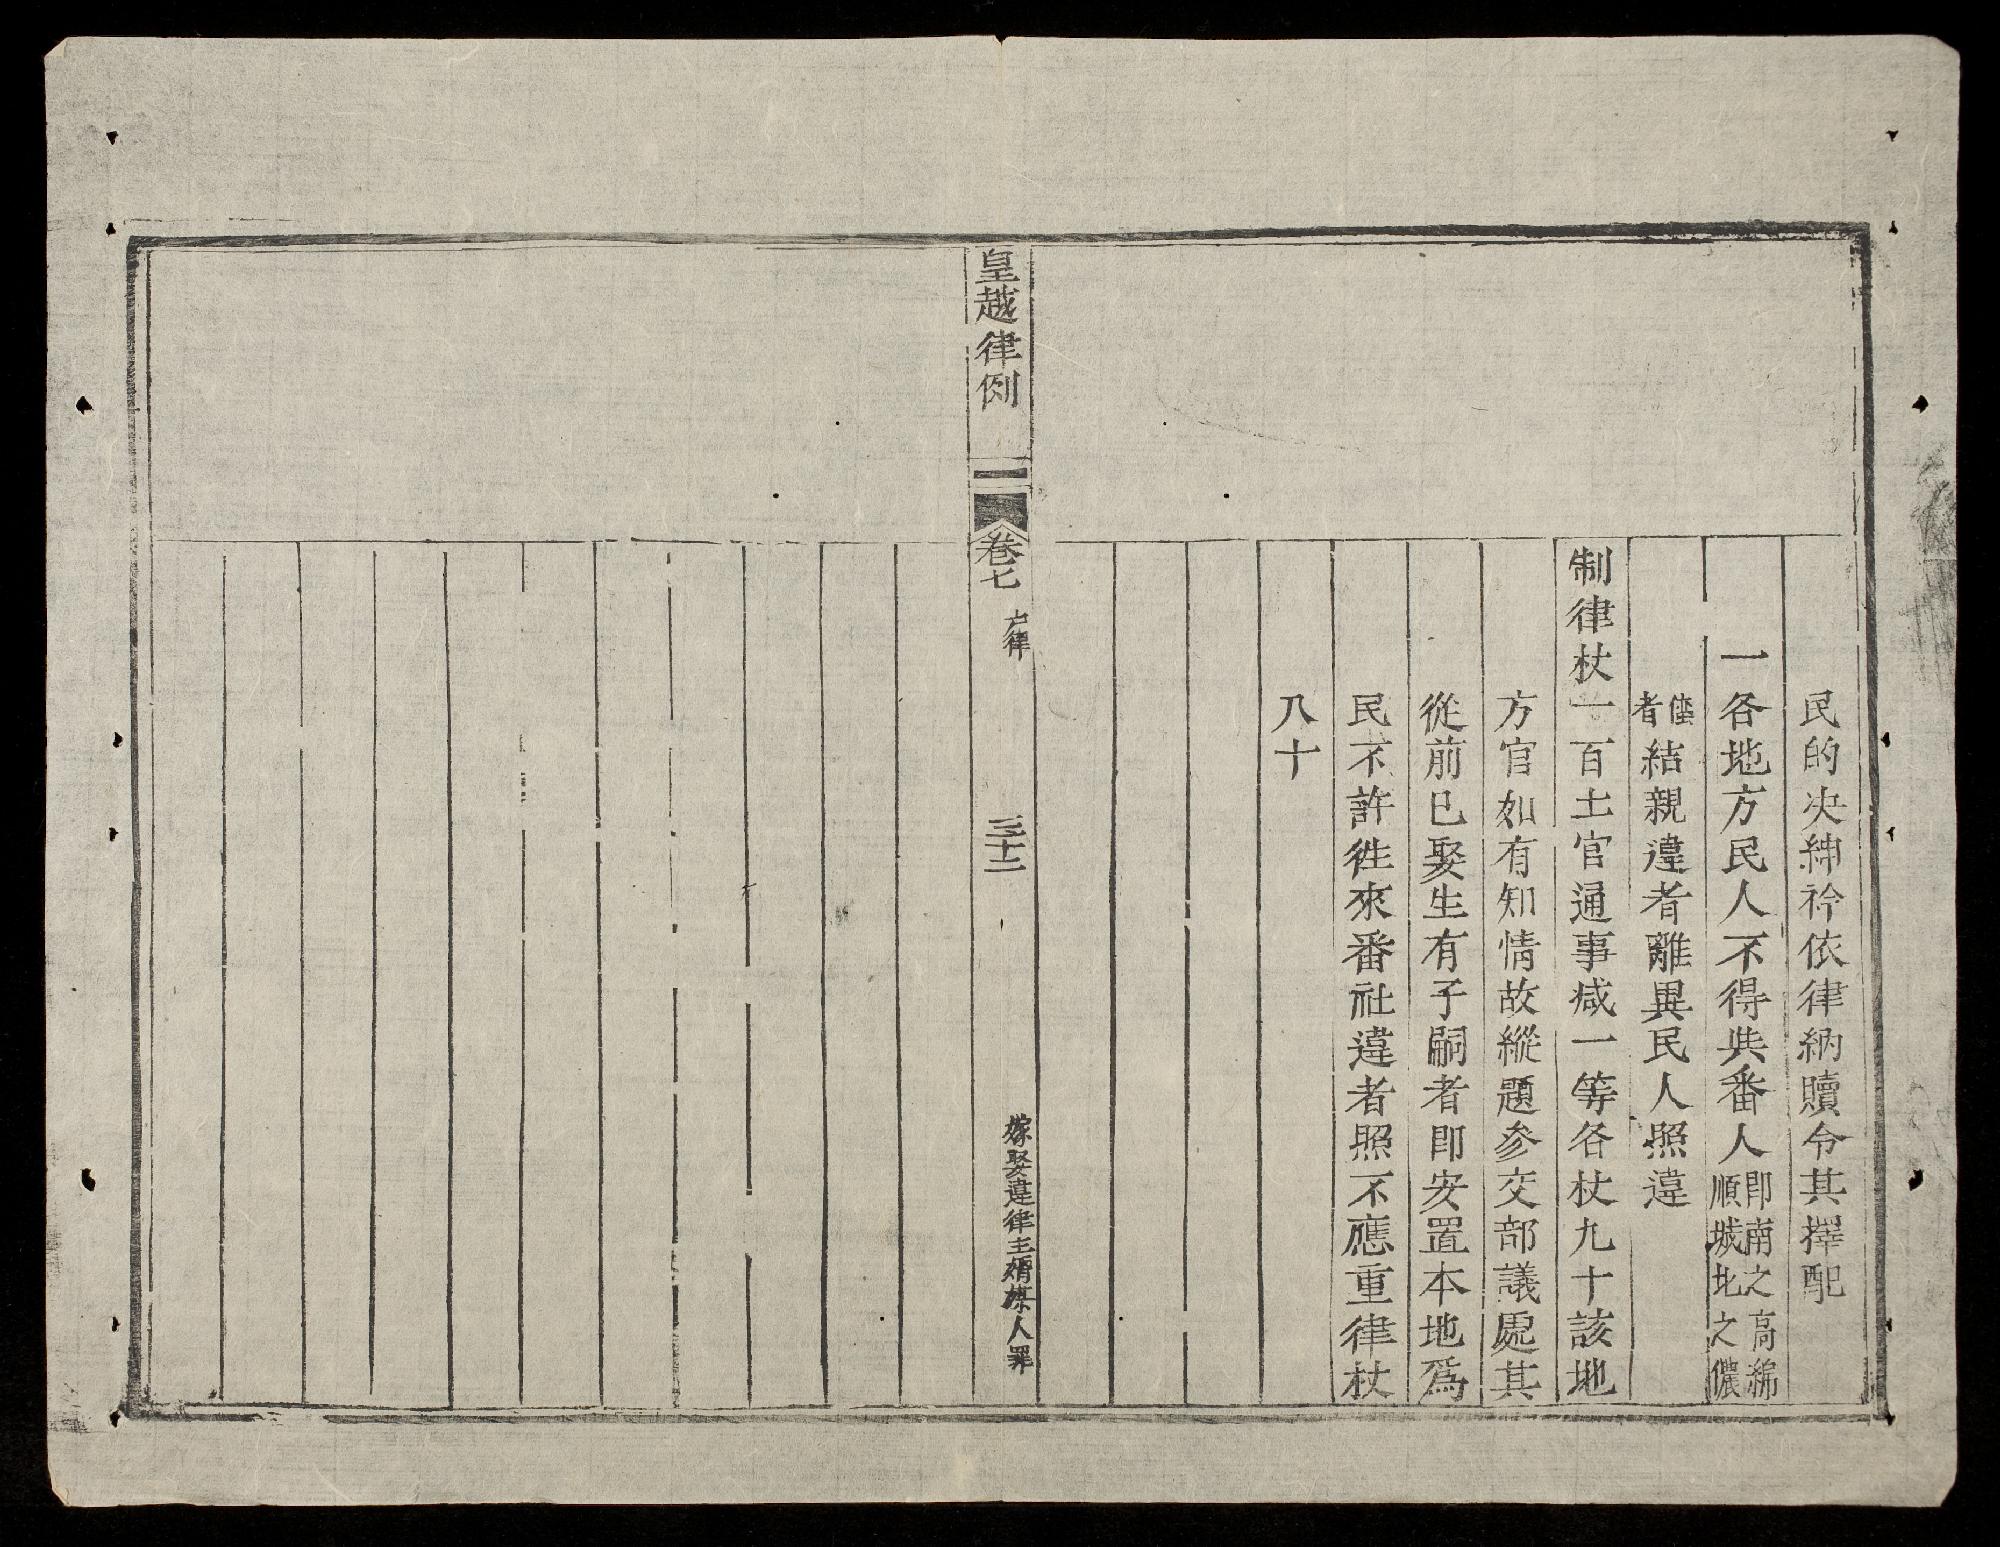 民的决紳衿依律納贖令其擇配
一各地方民人不得與番人即南之高綿順城北之儂
者結親違者離異民人照違
制律杖一百土官通事减一等各杖九十該地
方官如有知情故縱題參交部議處其
從前已娶生有子嗣者即安置本地爲
民不許徃來番社違者照不應重律杖
八十
皇越律例
卷七
户律
三十二
嫁娶違律主婚媒人罪